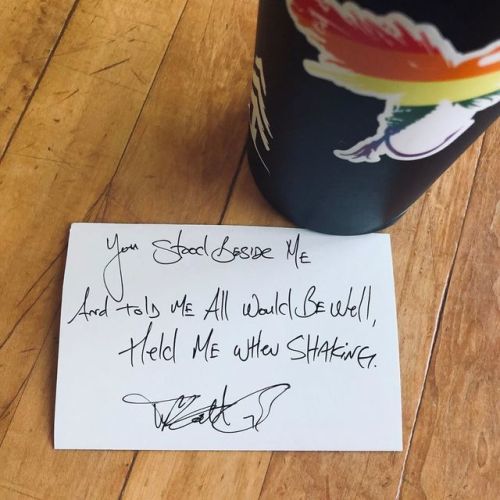 You Stood Beside Me
And told Me All Would Be Well,
Held Me when SHAKiNG.